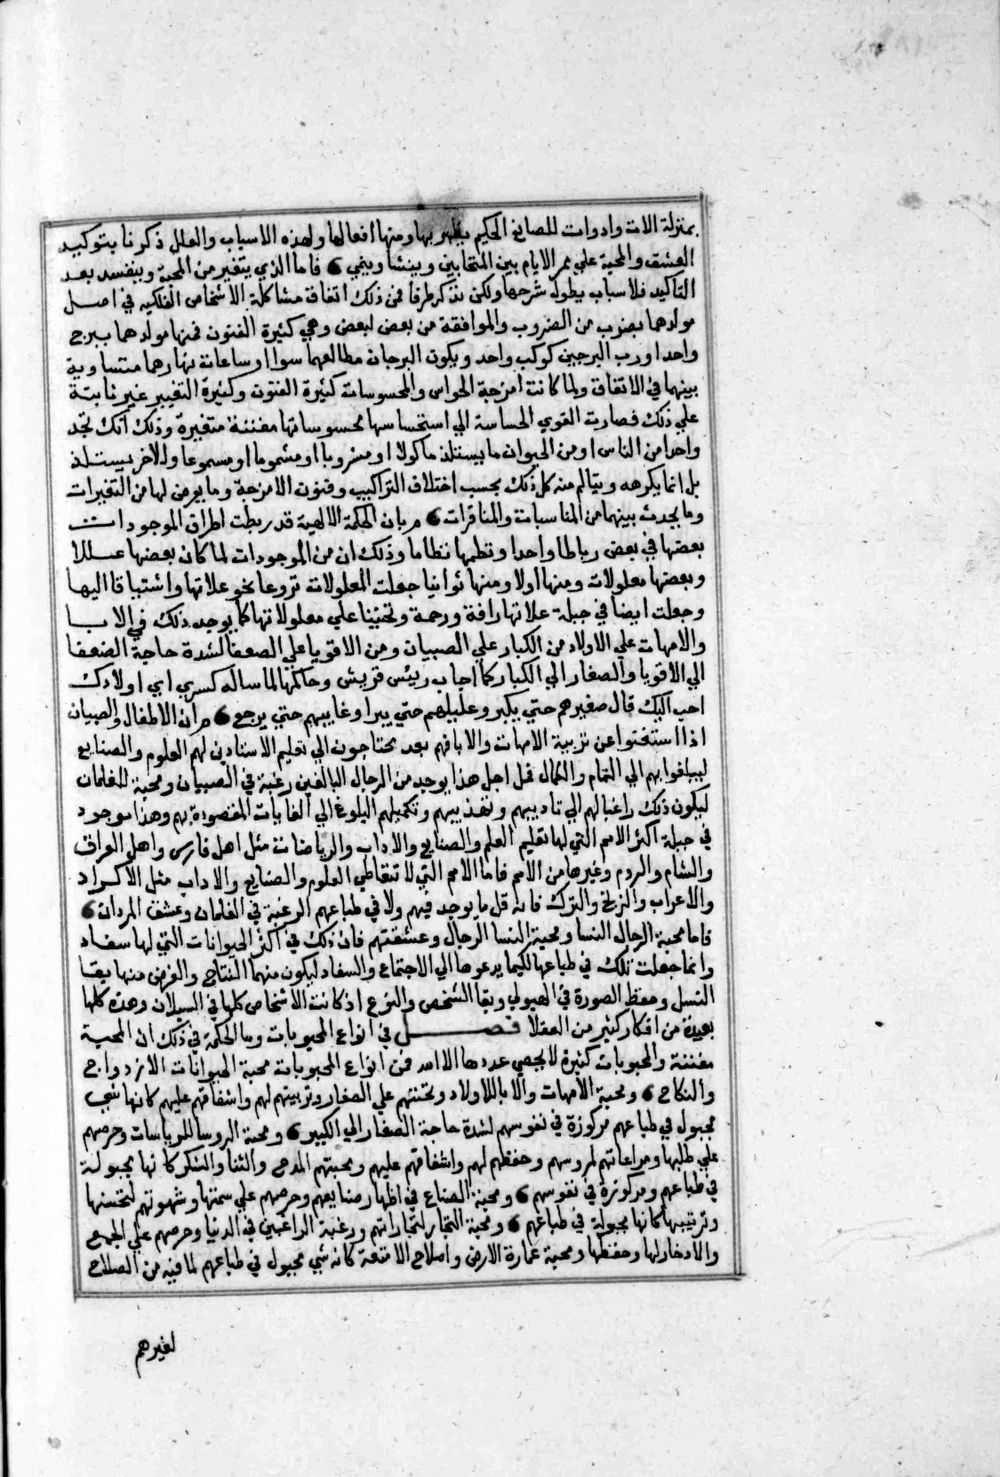 بمنزلة الات وادوات للصانع الحكيم يظهر بها ومنها افعالها ولهذه الاسباب والعلل ذكرنا بتوكيد
العشق والمحبة علي ممر الايام بين المتحابين وينشا وينمي 6 فاما الذي يتغير من المحبة وينفسد بعد
التاكيد فلاسباب يطول شرحها ولكن نذكر طرفا فمن ذلك اتفاق مشاكلة الاشخاص الفلكيه في اصل
مولدهما بضرب من الضروب والموافقة من بعض لبعض وهي كثيرة الفنون فمنها مولدهما ببرج
واحد او رب البرجين كوكب واحد ويكون البرجان مطالعهما سوا او ساعات نهارهما متساوية
بينهما في الاتفاق ولما كانت امزجة الحواس والمحسوسات كثيرة الفنون وكثيرة التغيير غير ثابتة
علي ذلك فصارت القوي الحساسة الي استحساسها محسوساتها مفننة متغيرة وذلك انك تجد
واحدا من الناس او من الحيوان ما يستلذ ماكولا او مشروبا او مشموما او مسموعا والاخر يستلذ
بل انما يكرهه ويتالم منه كل ذلك بحسب اختلاف التراكيب وفنون الامزجة وما يعرض لها من التغييرات
وما يحدث بينهما من المناسبات والمنافرات 6 مر بان الحكمة الالهية قد ربطت اطراف الموجودات
بعضها في بعض رباطا واحدا ونظمها نظاما وذلك ان من الموجودات لما كان بعضها عللا
وبعضها معلولات ومنها اولا ومنها ثوانيا جعلت المعلولات نزوعا نحو علاتها واشتياقا اليها
وجعلت ايضا في جبلة علاتها رافة ورحمة وتحننا علي معلولاتها كما يوجد ذلك في الابا
والامهات علي الاولاد من الكبار علي الصبيان ومن الاقويا علي الضعفا لشدة حاجة الضعفا
الي الاقويا والصغار الي الكبار كما اجاب رييس قريش وحاكمها لما ساله كسري اي اولادك
احب اليك قال صغيرهم حتي يكبر وعليلهم حتي يبرا وغايبهم حتي يرجع 6 مر ان الاطفال والصبيان
اذا استغنوا عن تربية الامهات والابا فهم بعد يحتاجون الي تعليم الاستادين لهم العلوم والصنايع
ليبلغوا بهم الي التمام والكمال فمن اجل هذا يوجد من الرجال البالغين رغبة في الصبيان ومحبة للغلمان
ليكون ذلك داعيا لهم الي تاديبهم وتهذيبهم وتكميلهم البلوغ الي الغايات المقصودة بهم وهذا موجود
في جبلة اكثر الامم التي لها تعليم العلم والصنايع والاداب والرياضات مثل اهل فارس واهل العراق
والشام والروم وغيرها من الامم فاما الامم التي لا تتعاطي العلوم والصنايع والاداب مثل الاكراد
والاعراب والزنج والترك فانه قل ما يوجد فيهم ولا في طباعهم الرغبة في الغلمان وعشق المردان 6
فاما محبة الرجال النسا ومحبة النسا الرجال وعشقهم فان ذلك في اكثر الحيوانات التي لها سفاد
وانما جعلت تلك في طباعها لكيما يدعوها الي الاجتماع والسفاد ليكون منهما النتاج والغرض منها بقا
النسل وحفظ الصورة في الهيولي وبقا الشخص والنوع اذ كانت الاشخاص كلها في السيلان وهذه كلها
بعيدة من افكار كثير من العقلا فصل في انواع المحبوبات وما الحكمة في ذلك ان المحبة
مفننة والمحبوبات كثيرة لا يحصي عددها الا الله فمن انواع المحبوبات محبة الحيوانات الازدواج
والنكاح 6 ومحبة الامهات والابا للاولاد وتحننهم علي الصغار وتربيتهم لهم واشفاقهم عليهم كانها شي
مجبول في طباعهم مركوزة في نفوسهم لشدة حاجة الصغار الي الكبير 6 ومحبة الروسا للرياسات وحرصهم
علي طلبها ومراعاتهم لمروسهم وحفظهم لهم واشفاقهم عليهم ومحبتهم المدح والثنا والشكر كانها مجبولة
في طباعهم ومركوزة في نفوسهم 6 ومحبة الصناع في اظهار صنايعهم وحرصهم علي سمتها وشهوتهم لتحسنها
وترتيبها كانها مجبولة في طباعهم 6 ومحبة التجار لتجاراتهم ورغبة الراغبين في الدنيا وحرصهم علي الجمع
والادخار لها وحفظها ومحبة عمارة الارض واصلاح الامتعة كانه شي مجبول في طباعهم لما فيه من الصلاح
لغيرهم